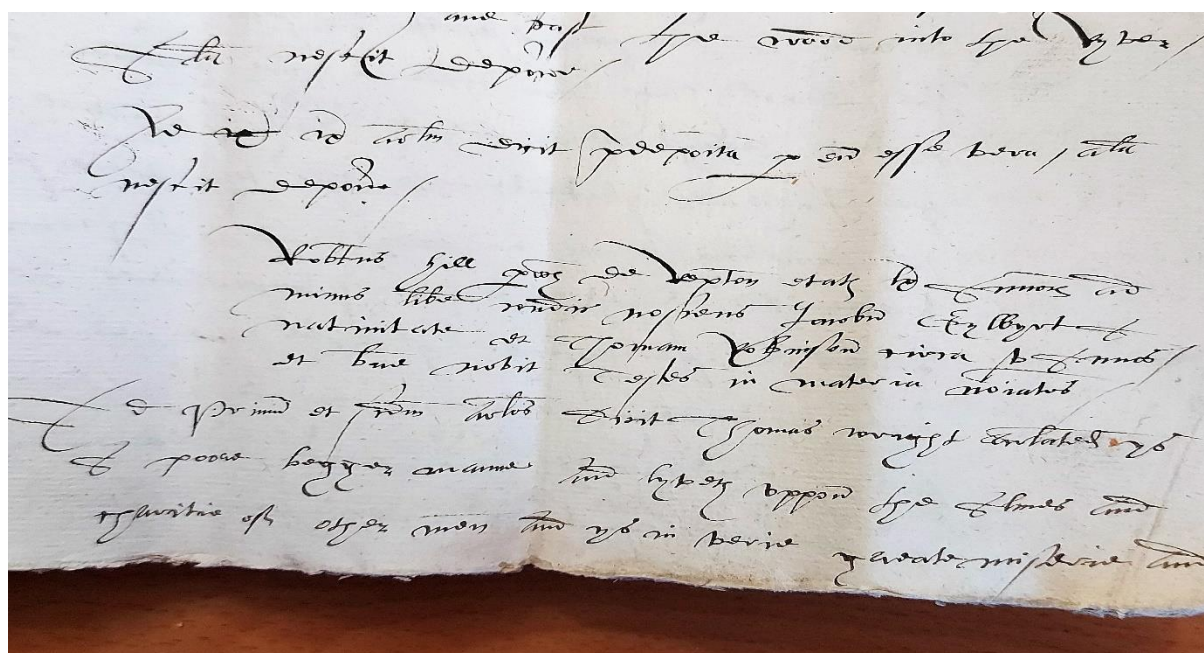 and past the wood into the Ryver /
Alr nescit deponere /
Ad ix artlm dicit pdeposita p eu esse vera / alr
nescit deponre /
Robtus Hill de Repton etats Annors ad
minus libere condic noscens Jacobu Gylbyrt a
nativitate et Thomam Robinson circa v Annos /
et bene novit Testes in materia noiatos
Ad Primu et scdm artlos dicit Thomas wright arlated ys
A poore begger manne and lyveth uppon the Almes and
charitie off other men and ys in verie greate miserie and